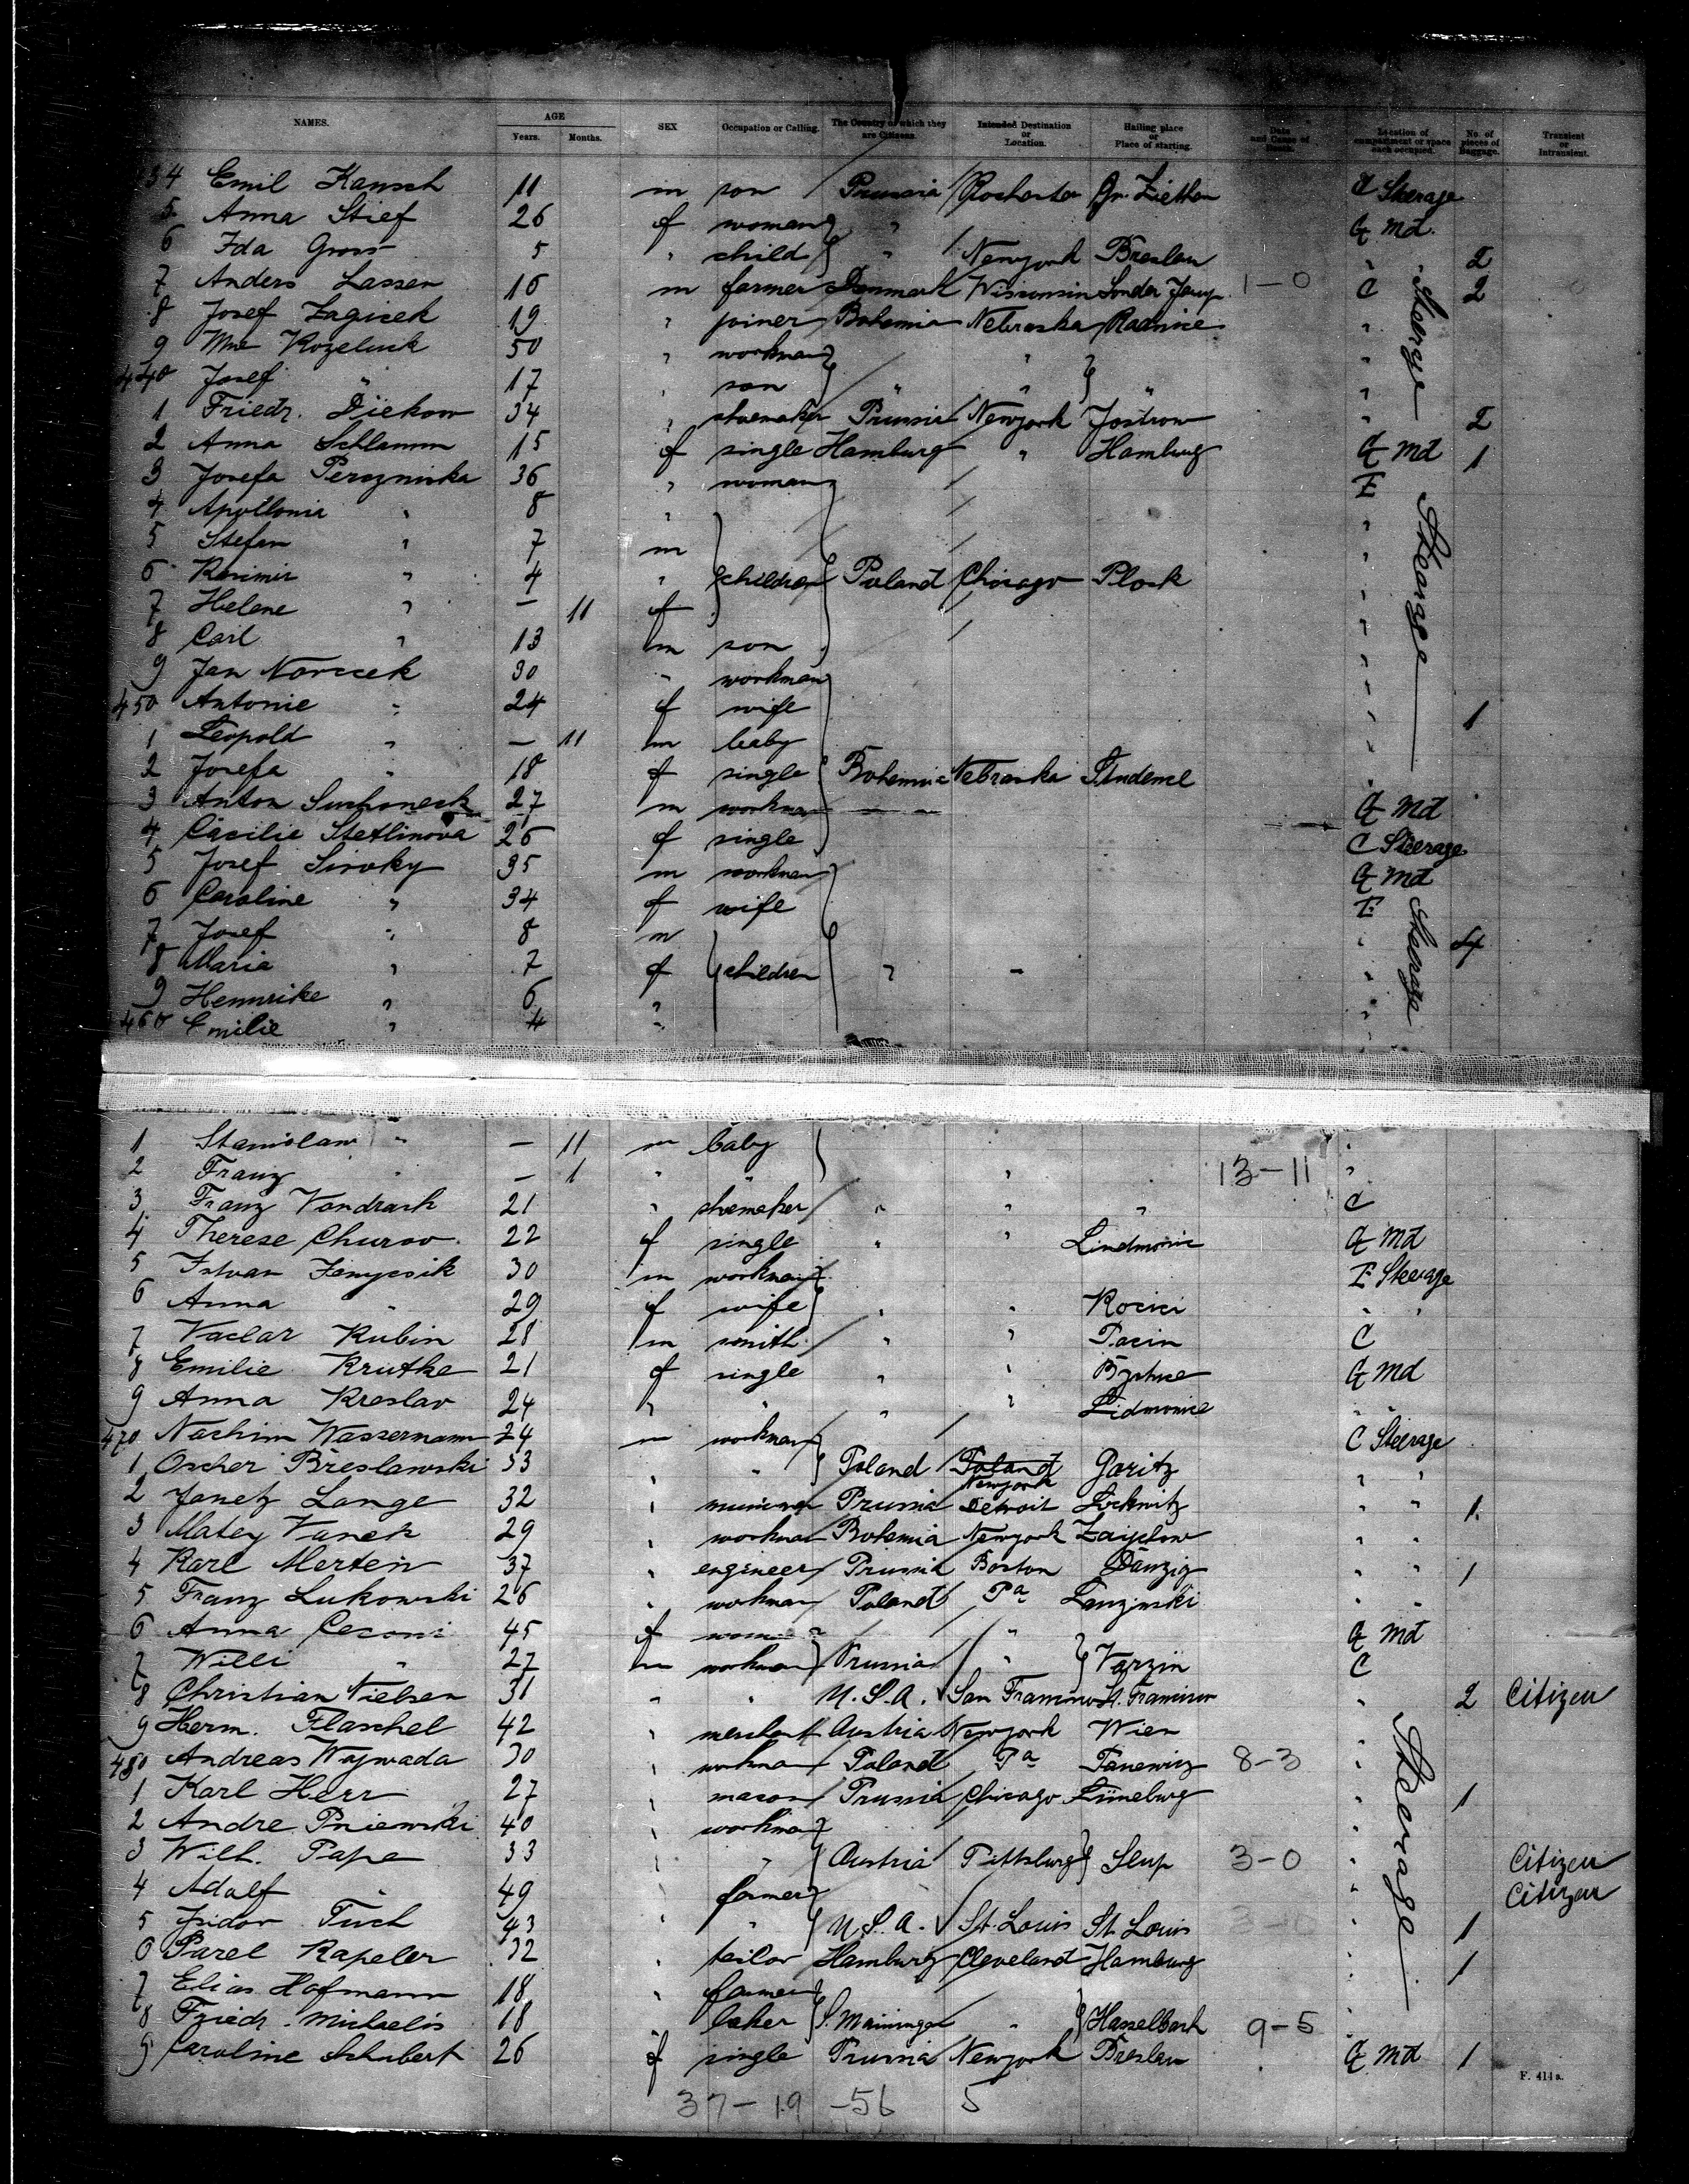 NAMES. AGE Years. Months. SEX Occupation or Calling. The Country of which they are Citizens. Intended Destination or Location. Hailing place or Place of starting. Date and Cause of Location of compartment or space each occupied. No. of pieces of Baggage. Transient or Intransient.
34 Emil Kansch 11 m son Prussia Rochester Gr. Ziethen C Steerage
5 Anna Stief 26 f woman " G Md.
6 Ida Gross 5 " child " Newyork Breslau " 2
7 Anders Lassen 16 m farmer Denmark Wisconsin Sonder Jarup 1-0 C 2
8 Josef Zagicek 19 " joiner Bohemia Nebraska "
9 Kozeluck 50 " workman " "
440 Josef " 17 " son " " " "
1 Friedr. Diekow 34 " shoemaker Prussia Newyork Jastrow " 2
2 Anna Schlamm 15 f single Hamburg " Hamburg G Md 1
3 Josefa 36 " woman E
4 Apollonia " 8 " "
5 Stefan " 7 m "
6 Kasimir " 4 " children Poland Chicago Plock "
7 Helene " — 11 f "
8 Carl " 13 m son "
9 Jan Norccek 30 " workman "
450 Antonie " 24 f wife " 1
1 Leopold " — 11 m baby "
2 Josefa " 18 f single Bohemia Nebraska Studenec
3 Anton Suchoneck 27 m workman G Md
4 Cäcilie Stetlinova 26 f single C Steerage
5 Josef Siroky 35 m workman G Md
6 Caroline " 34 f wife E Steerage
7 Josef " 8 m " 4
8 Maria " 7 f children " "
9 Hennrike " 6 " "
460 Emilie " 4 " "
1 Stanislaw " — 11 m baby "
2 Franz " — 1 " " " 13-11 "
3 Franz Vondrach 21 " shoemaker " " " C
4 Therese Churav 22 f single " " G Md
5 Istvan 30 m workman E Steerage
6 Anna " 29 f wife " " Kocici " "
7 Vaclav Rubin 28 m smith " " Pacin C
8 Emilie Krutke 21 f single " " G Md
9 Anna Kreslav 24 " " " " " "
470 Nachim Wassermann 24 m workman C Steerage
1 Oscher Breslawski 33 " " Poland Poland Newyork Goritz " "
2 Lange 32 " Prussia Detroit Löcknitz " " 1
3 Matey Vanek 29 " workman Bohemia Newyork " "
4 Karl Merten 37 " engineer Prussia Boston Danzig " " 1
5 Franz Lukowski 26 " workman Poland Pa " "
6 Anna 45 f woman " G Md
7 Willi " 27 m workman Prussia " Varzin C
8 Christian Nielsen 31 " " U.S.A. San Francisco St. Francisco " 2 Citizen
9 Herm. Flaschel 42 " merchant Austria Newyork Wien " Steerage
480 Andreas Wajwada 30 " workman Poland Pa 8-3 "
1 Karl Herr 27 " mason Prussia Chicago Lüneburg " 1
2 Andre Pniewski 40 " workman
3 Wilh. Pape 33 " " Austria Pittsburg Slup 3-0 " Citizen
4 Adolf " 49 " farmer " Citizen
5 Isidor Tuch 43 " " U.S.A. St. Louis St. Louis " 1
6 Rapeler 32 " tailor Hamburg Cleveland Hamburg " 1
7 Elias Hofmann 18 " farmer "
8 Friedr. Michaelis 18 baker S. Mainingen " Hasselbach 9-5 "
9 Caroline Schubert 26 f single Prussia Newyork Breslau G Md 1
F. 414 a.
37-19-56 5